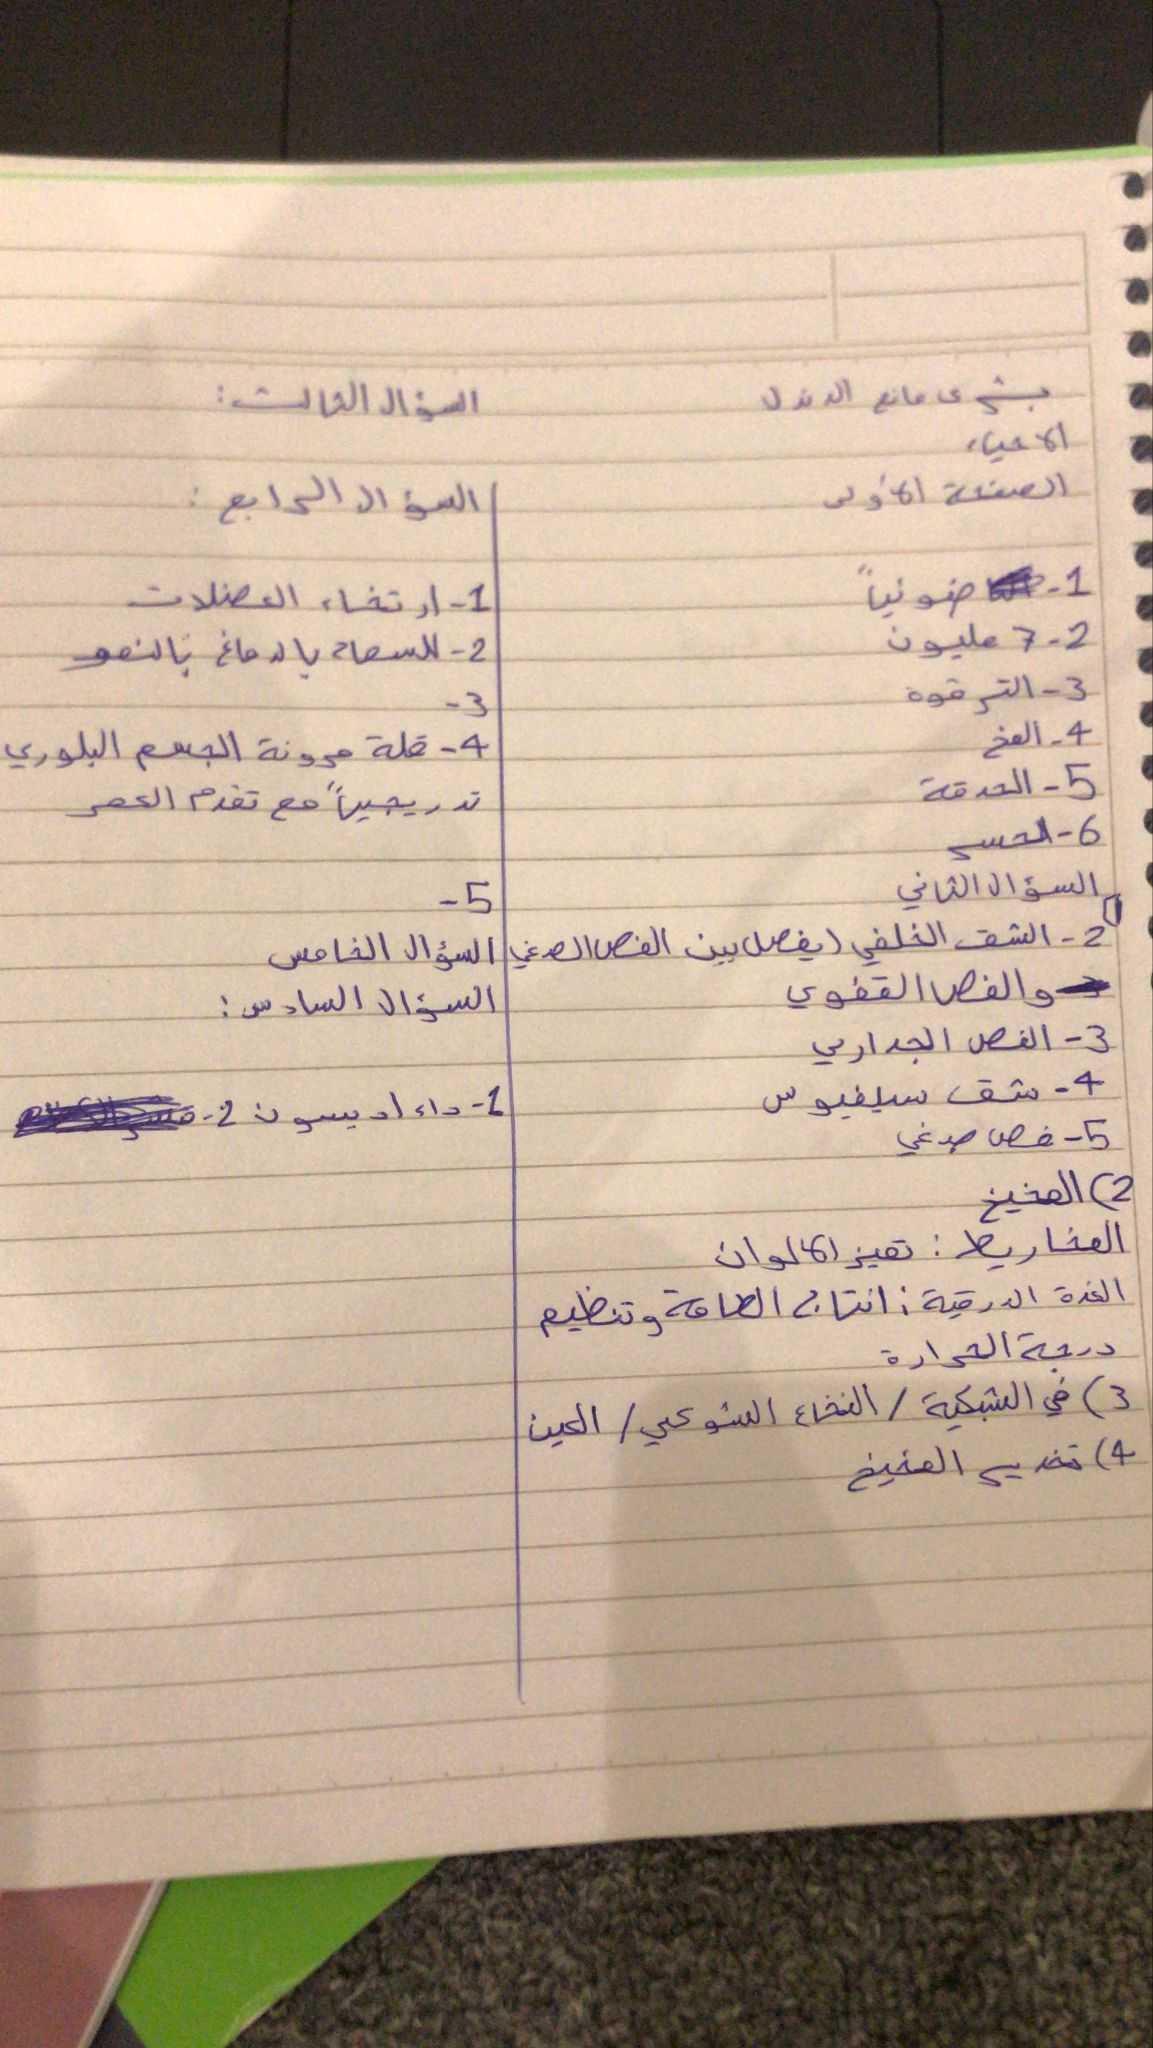 بشرى مانع الدندل
الاحياء
الصفحة الاولى
1- ضوئياً
2- 7 مليون
3- الترقوة
4- المخ
5- الحدقة
6- الحسي
السؤال الثاني
2- الشق الخلفي (يفصل بين الفص الصدغي
والفص القفوي
3- الفص الجداري
4- شق سيلفيوس
5- فص صدغي
2) المخيخ
المخاريط : تميز الالوان
الغدة الدرقية : انتاج الطاقة وتنظيم
درجة الحرارة
3) في الشبكية / النخاع الشوكي / العين
4) تخريب المخيخ
السؤال الثالث :
السؤال الرابع :
1- ارتخاء العضلات
2- للسماح بالدماغ بالنمو
3-
4- قلة مرونة الجسم البلوري
تدريجياً مع تقدم العمر
5-
السؤال الخامس
السؤال السادس :
1- داء اديسون 2-